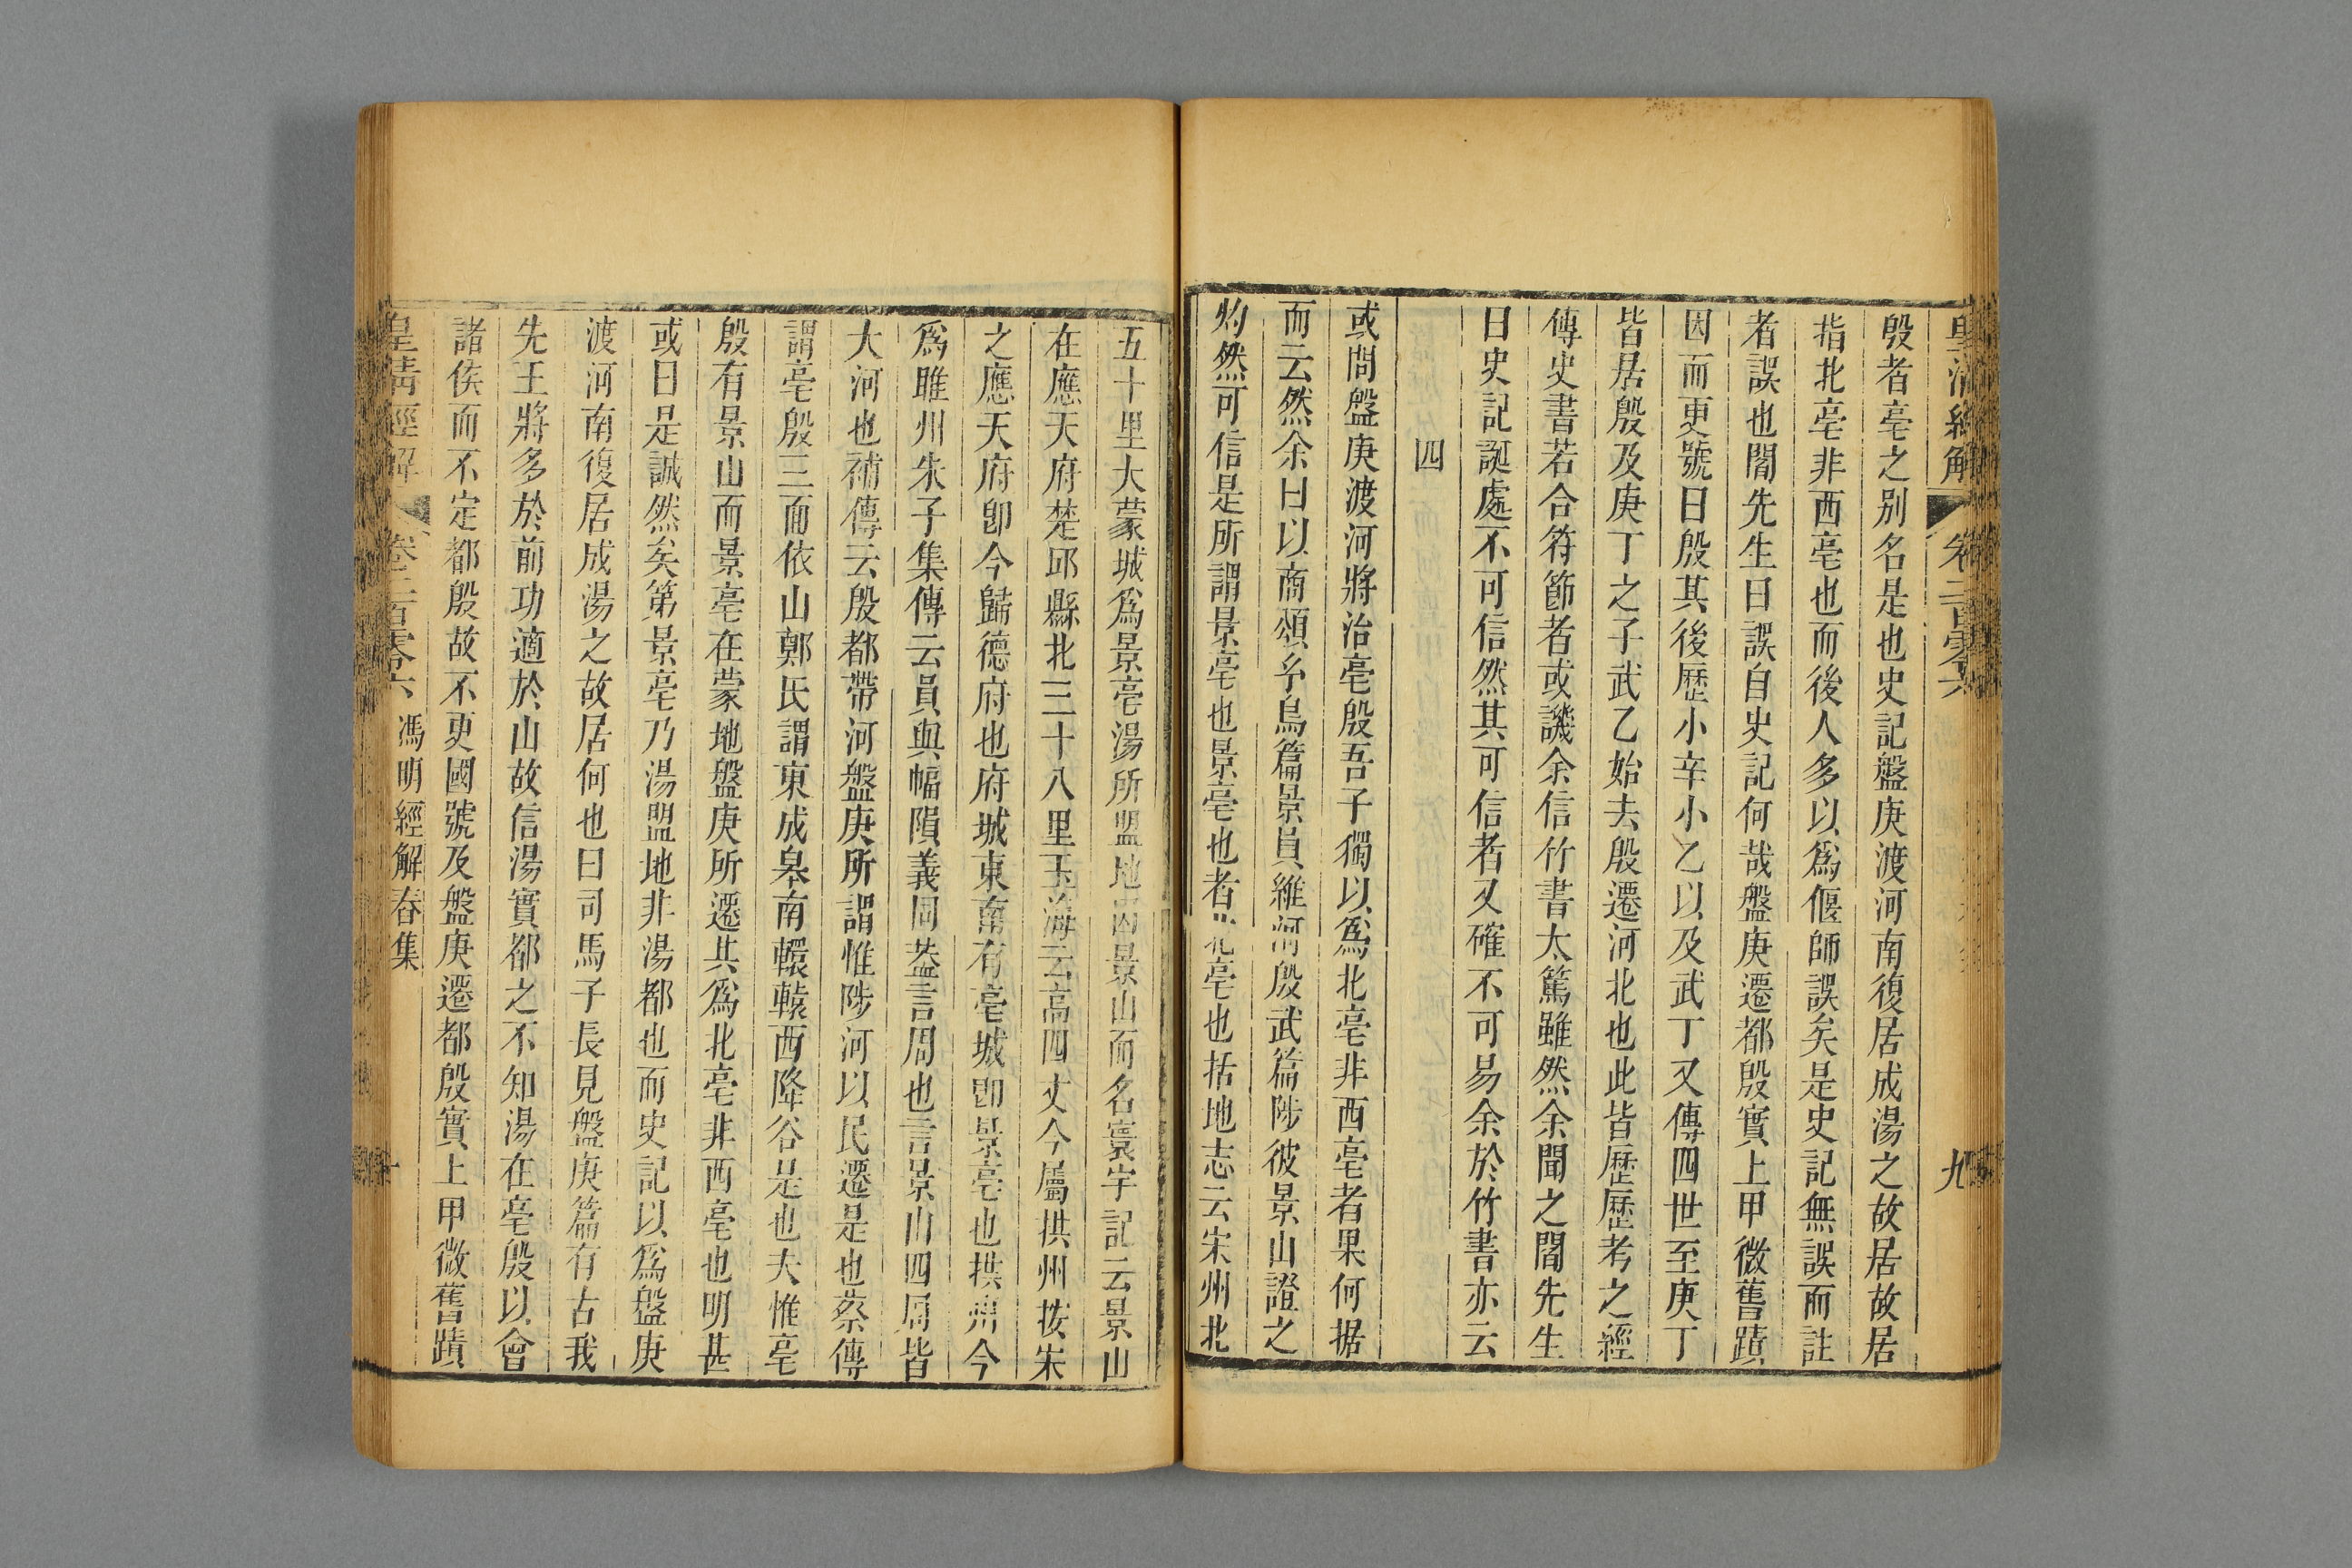 皇清經解 卷二百零六 九
殷者亳之别名是也史記盤庚渡河南復居成湯之故居故居
指北亳非西亳也而後人多以爲偃師誤矣是史記無誤而註
者誤也閻先生曰誤自史記何哉盤庚遷都殷實上甲微舊蹟
因而更號曰殷其後歷小辛小乙以及武丁又傳四世至庚丁
皆居殷及庚丁之子武乙始去殷遷河北也此皆歷歷考之經
傳史書若合符節者或譏余信竹書太篤雖然余聞之閻先生
曰史記誕處不可信然其可信者又確不可易余於竹書亦云
四
或問盤庚渡河將治亳殷吾子獨以爲北亳非西亳者果何据
而云然余曰以商頌𤣥鳥篇景員維河殷武篇陟彼景山證之
灼然可信是所謂景亳也景亳也者北亳也括地志云宋州北
五十里大蒙城爲景亳湯所盟地因景山而名寰宇記云景山
在應天府楚邱縣北三十八里玉海云高四丈今屬拱州按宋
之應天府卽今歸德府也府城東南有亳城卽景亳也拱州今
爲睢州朱子集傳云員與幅隕義同葢言周也言景山四周皆
大河也補傳云殷都帶河盤庚所謂惟陟河以民遷是也蔡傳
謂亳殷三面依山鄭氏謂東成皋南轘轅西降谷是也夫惟亳
殷有景山而景亳在蒙地盤庚所遷其爲北亳非西亳也明甚
或曰是誠然矣第景亳乃湯盟地非湯都也而史記以爲盤庚
渡河南復居成湯之故居何也曰司馬子長見盤庚篇有古我
先王將多於前功適於山故信湯實都之不知湯在亳殷以會
諸侯而不定都殷故不更國號及盤庚遷都殷實上甲微舊蹟
皇清經解 卷二百零六 馮明經解舂集 十